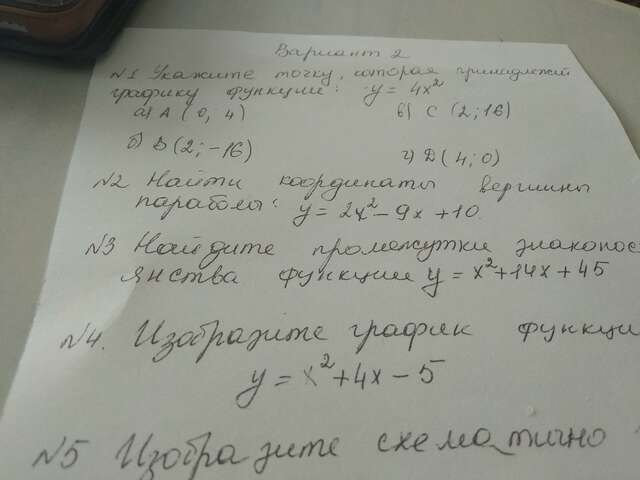 Вариант 2
№1 Укажите точку, которая принадлежит
графику функции: y = 4x²
а) A (0, 4) в) C (2; 16)
б) B (2; -16) г) D (4; 0)
№2 Найти координаты вершины
параболы: y = 2x² - 9x + 10.
№3 Найдите промежутки знакопос
янства функции y = x² + 14x + 45
№4. Изобразите график функци
y = x² + 4x - 5
№5 Изобразите схематично